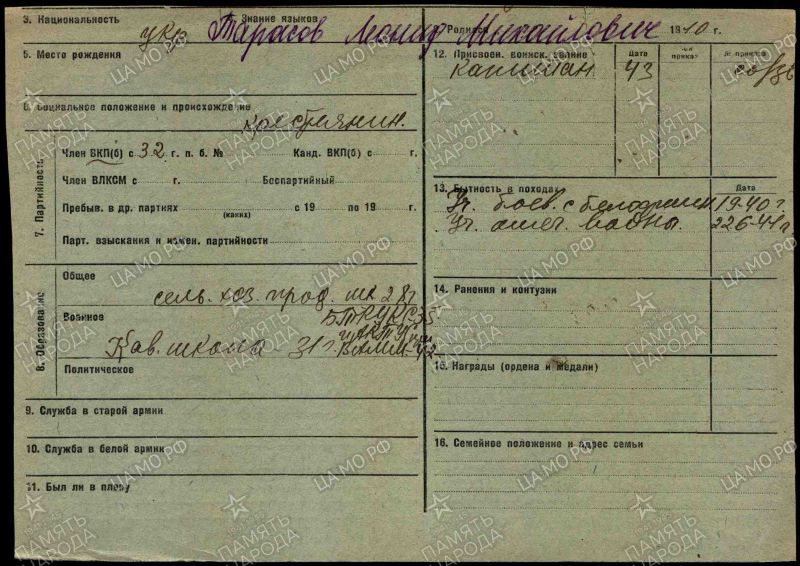 3. Национальность Знание языков Родился 1910 г.
укр. Тарасов Леонид Михайлович
5. Место рождения
12. Присвоен. воинск. звание Дата № приказа
капитан 43
6. Социальное положение и происхождение
крестьянин.
7. Партийность
Член ВКП(б) с 32 г. п. б. № Канд. ВКП(б) с г.
Член ВЛКСМ с г. Беспартийный
Пребыв. в др. партиях с 19 по 19 г.
(каких)
Парт. взыскания и измен. партийности
13. Бытность в походах Дата
Уч. боев. с белофинн 1940 г.
Уч. отеч. войны. 22.6-41 г.
8. Образование
Общее
сель. хоз. проф. шк 28 г
Военное
БТКУКС-35
Кав. школа - 31 г. ВАММ-42
Политическое
14. Ранения и контузии
15. Награды (ордена и медали)
9. Служба в старой армии
10. Служба в белой армии
11. Был ли в плену
16. Семейное положение и адрес семьи
ПАМЯТЬ НАРОДА
ЦАМО.РФ